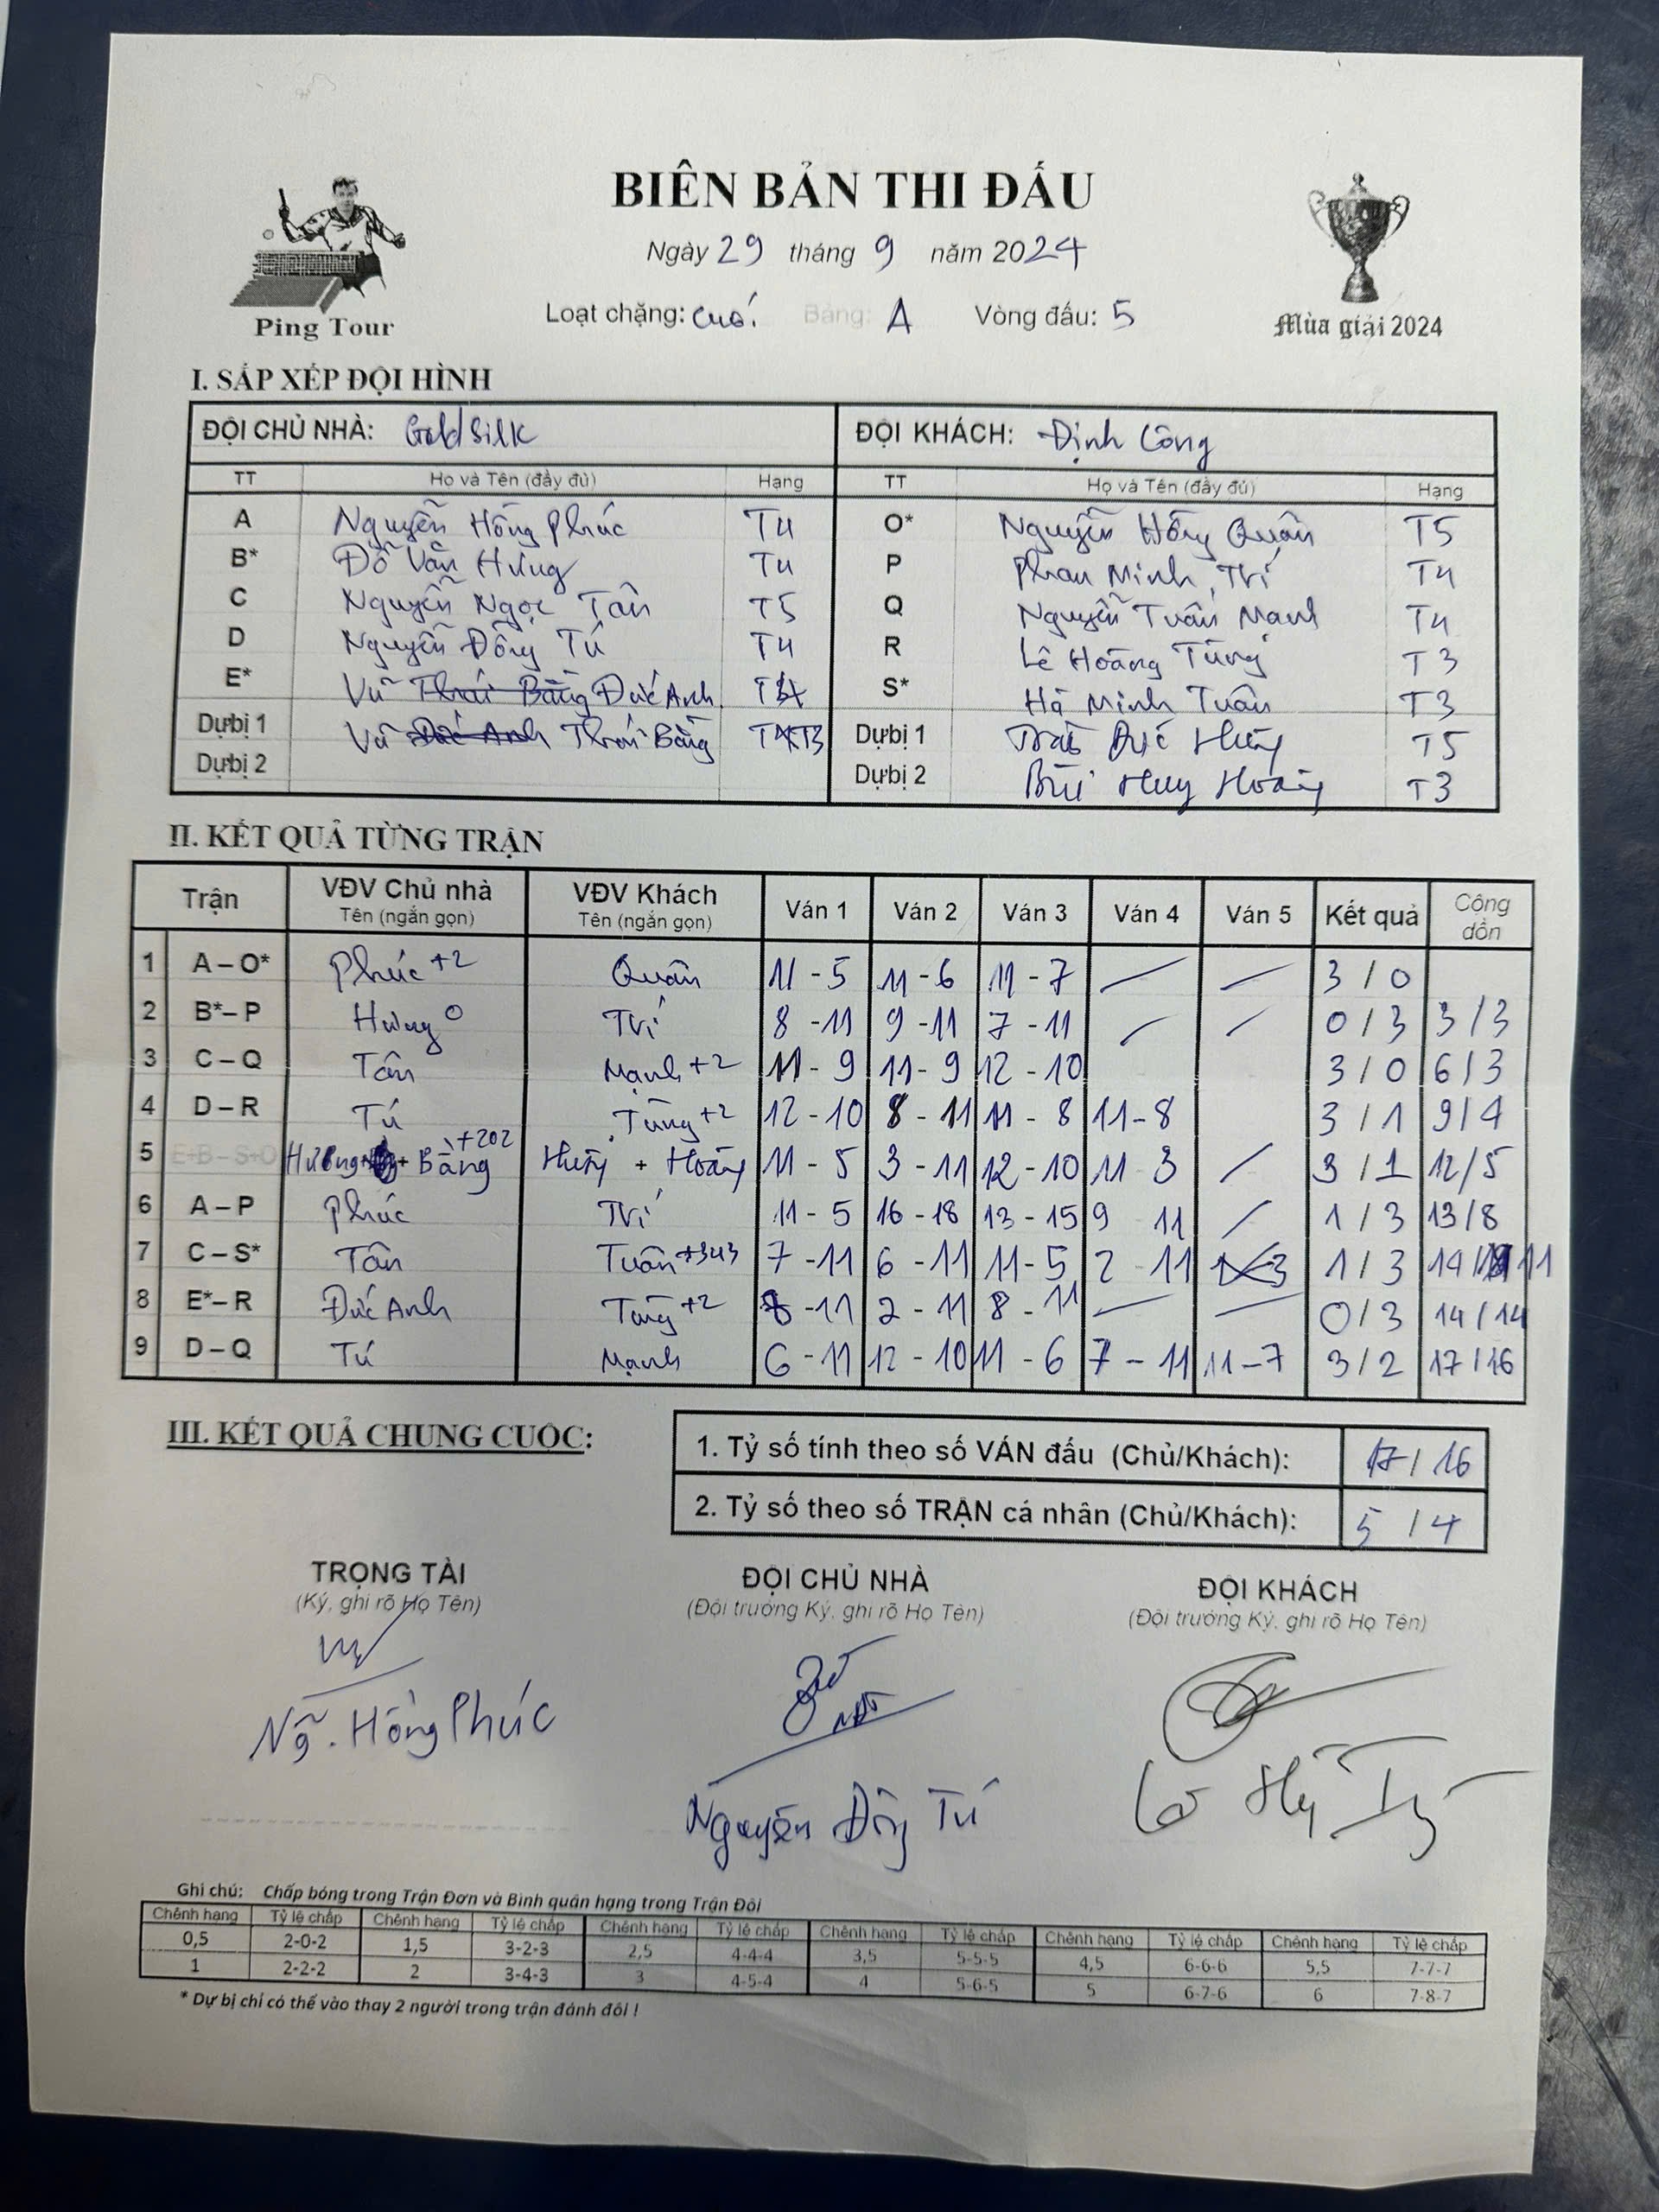 BIÊN BẢN THI ĐẤU
Ngày 29 tháng 9 năm 2024
Ping Tour
Loạt chặng: cuối Bảng: A Vòng đấu: 5
Mùa giải 2024
I. SẮP XẾP ĐỘI HÌNH
ĐỘI CHỦ NHÀ: GoldSilk ĐỘI KHÁCH: Định Công
TT Họ và Tên (đầy đủ) Hạng TT Họ và Tên (đầy đủ) Hạng
A Nguyễn Hồng Phúc T4 O* Nguyễn Hồng Quân T5
B* Đỗ Văn Hưng T4 P Phan Minh Trí T4
C Nguyễn Ngọc Tân T5 Q Nguyễn Tuấn Mạnh T4
D Nguyễn Đồng Tú T4 R Lê Hoàng Tùng T3
E* Vũ Thái Bằng Đức Anh S* Hà Minh Tuấn T3
Dự bị 1 Vũ Đức Anh Thái Bằng T3 Dự bị 1 Trần Đức Hùng T5
Dự bị 2 Dự bị 2 Bùi Huy Hoàng T3
II. KẾT QUẢ TỪNG TRẬN
Trận VĐV Chủ nhà Tên (ngắn gọn) VĐV Khách Tên (ngắn gọn) Ván 1 Ván 2 Ván 3 Ván 4 Ván 5 Kết quả Cộng dồn
1 A – O* Phúc +2 Quân 11 - 5 11 - 6 11 - 7 — — 3 / 0
2 B* – P Hưng 0 Trí 8 - 11 9 - 11 7 - 11 — — 0 / 3 3 / 3
3 C – Q Tân Mạnh +2 11 - 9 11 - 9 12 - 10 3 / 0 6 / 3
4 D – R Tú Tùng +2 12 - 10 8 - 11 11 - 8 11 - 8 3 / 1 9 / 4
5 E+B – S+O Hưng + Bằng +202 Hùng + Hoàng 11 - 5 3 - 11 12 - 10 11 - 3 / 3 / 1 12 / 5
6 A – P Phúc Trí 11 - 5 16 - 18 13 - 15 9 11 / 1 / 3 13 / 8
7 C – S* Tân Tuấn +343 7 - 11 6 - 11 11 - 5 2 - 11 1 / 3 14 / 11
8 E* – R Đức Anh Tùng +2 8 - 11 2 - 11 8 - 11 — — 0 / 3 14 / 14
9 D – Q Tú Mạnh 6 - 11 12 - 10 11 - 6 7 - 11 11 - 7 3 / 2 17 / 16
III. KẾT QUẢ CHUNG CUỘC:
1. Tỷ số tính theo số VÁN đấu (Chủ/Khách): 17 / 16
2. Tỷ số theo số TRẬN cá nhân (Chủ/Khách): 5 / 4
TRỌNG TÀI ĐỘI CHỦ NHÀ ĐỘI KHÁCH
(Ký, ghi rõ Họ Tên) (Đội trưởng Ký, ghi rõ Họ Tên) (Đội trưởng Ký, ghi rõ Họ Tên)
Ng. Hồng Phúc
Nguyễn Đồng Tú
Ghi chú: Chấp bóng trong Trận Đơn và Bình quân hạng trong Trận Đôi
Chênh hạng Tỷ lệ chấp Chênh hạng Tỷ lệ chấp Chênh hạng Tỷ lệ chấp Chênh hạng Tỷ lệ chấp Chênh hạng Tỷ lệ chấp Chênh hạng Tỷ lệ chấp
0,5 2-0-2 1,5 3-2-3 2,5 4-4-4 3,5 5-5-5 4,5 6-6-6 5,5 7-7-7
1 2-2-2 2 3-4-3 3 4-5-4 4 5-6-5 5 6-7-6 6 7-8-7
* Dự bị chỉ có thể vào thay 2 người trong trận đánh đôi !